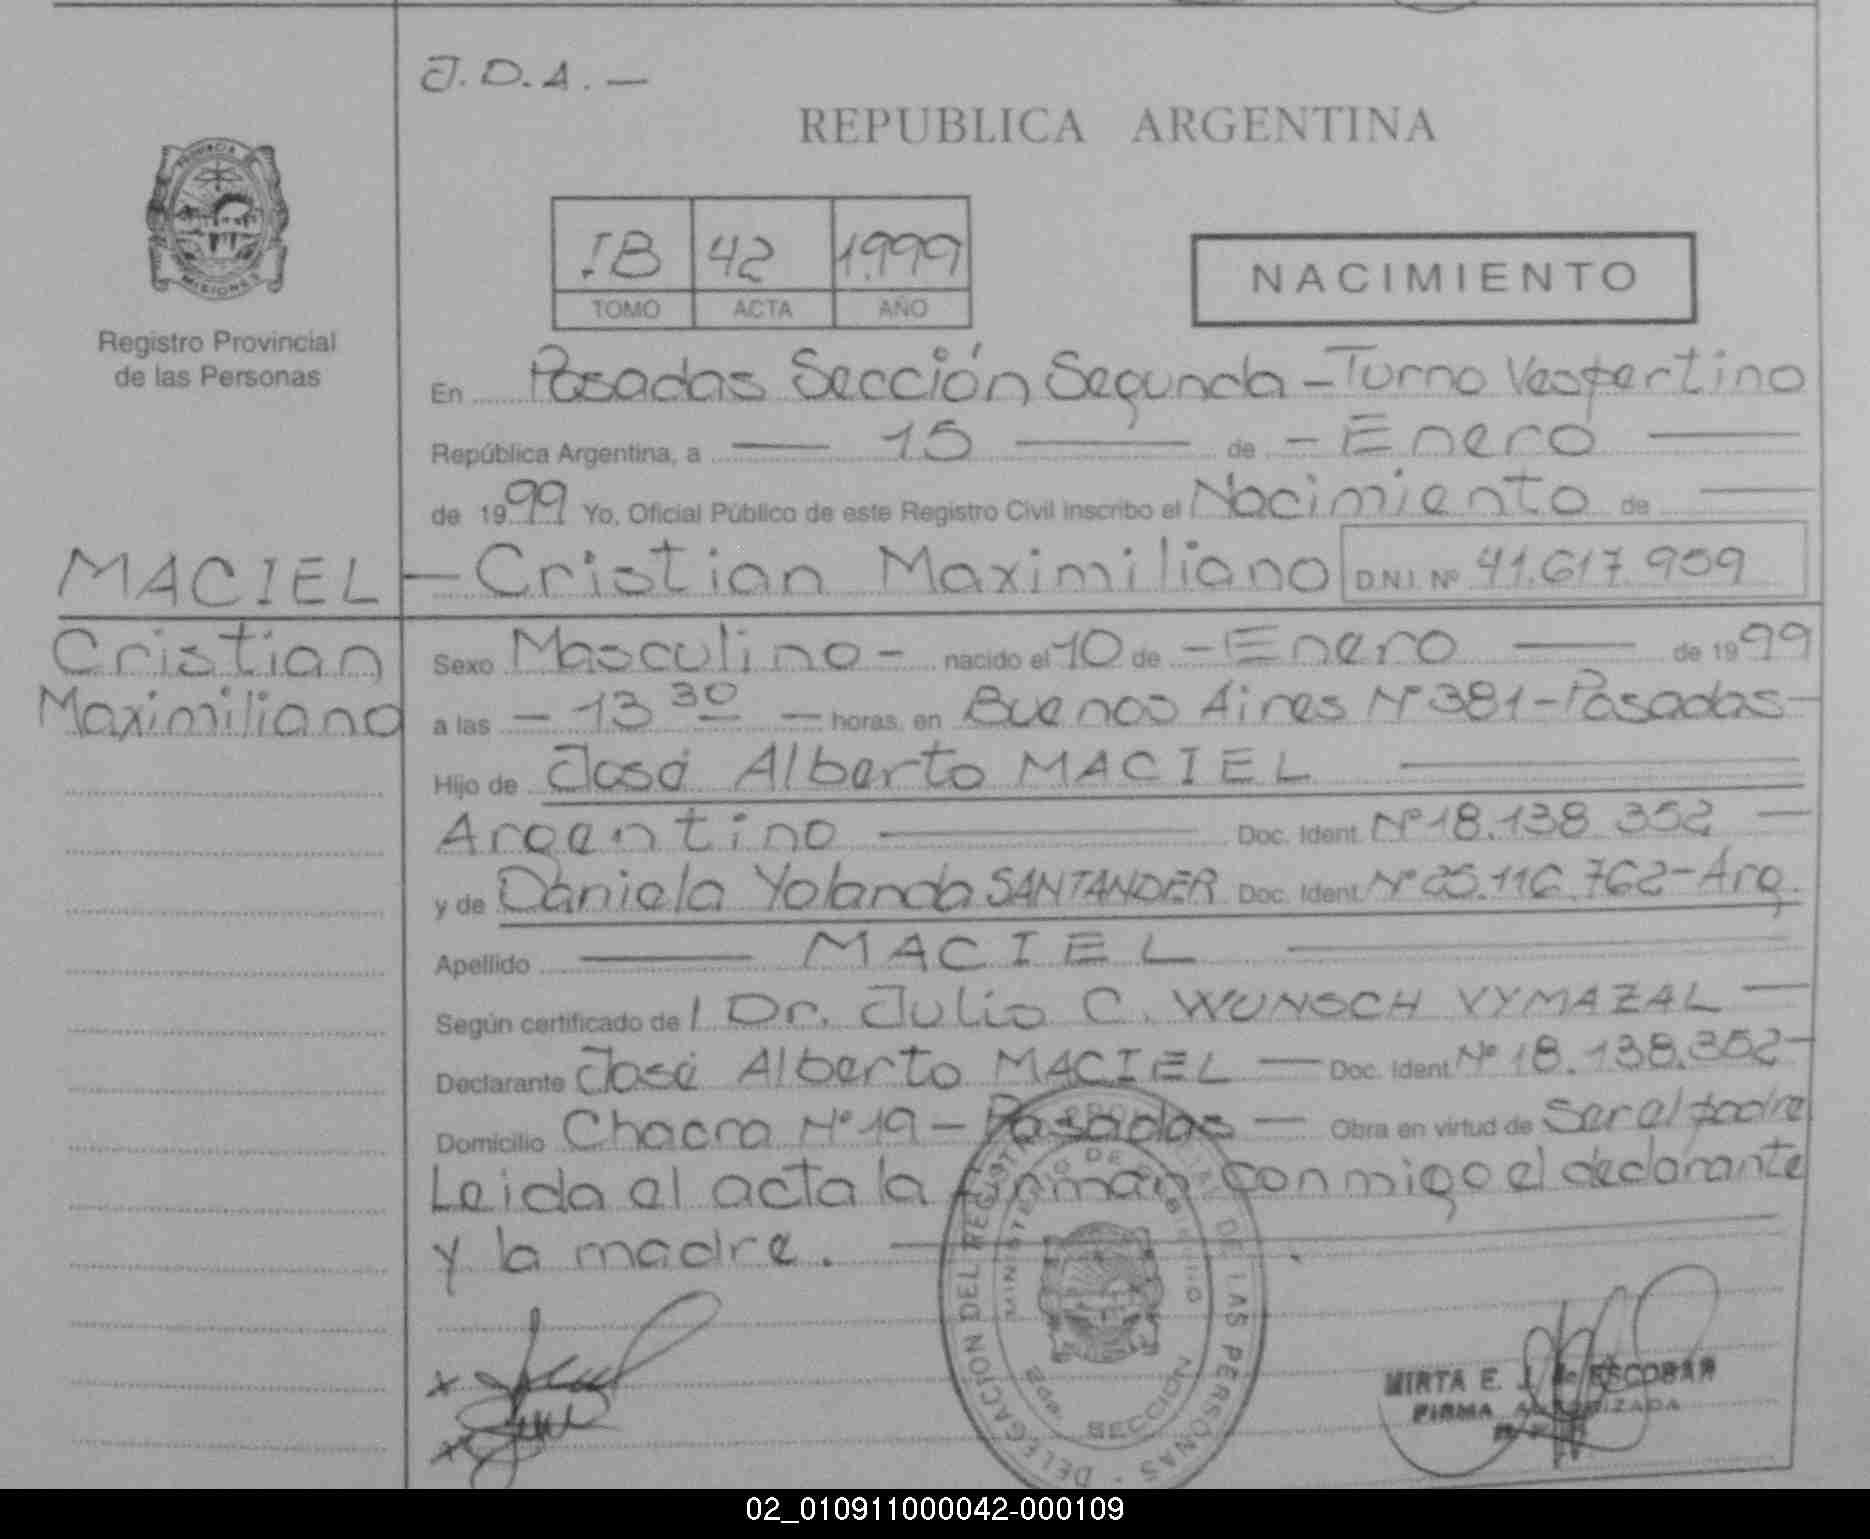 J.D.A.—
REPUBLICA ARGENTINA
PROVINCIA
MISIONES
Registro Provincial
de las Personas
IB 42 1.999
TOMO ACTA AÑO
NACIMIENTO
En Posadas Sección Segunda - Turno Vespertino
República Argentina, a — 15 — de - Enero —
de 1999 Yo, Oficial Público de este Registro Civil inscribo el Nacimiento de —
— Cristian Maximiliano D.N.I. Nº 41.617.959
MACIEL
Cristian
Maximiliano
Sexo Masculino - nacido el 10 de - Enero — de 1999
a las — 13 30 — horas, en Buenos Aires Nº 381 - Posadas -
Hijo de José Alberto MACIEL —
Argentino — Doc. Ident. Nº 18.138.352 —
y de Daniela Yolanda SANTANDER Doc. Ident. Nº 25.116.762 - Arg.
Apellido — MACIEL —
Según certificado de l Dr. Julio C. WUNSCH VYMAZAL —
Declarante José Alberto MACIEL — Doc. Ident. Nº 18.138.352 -
Domicilio Chacra Nº 19 - Posadas — Obra en virtud de Ser el padre
Leida el acta la firman conmigo el declarante
y la madre. —
DELEGACION DEL REGISTRO PROVINCIAL DE LAS PERSONAS
MINISTERIO DE GOBIERNO
SECCION
MIRTA E. J. de ESCOBAR
FIRMA AUTORIZADA
02_010911000042-000109